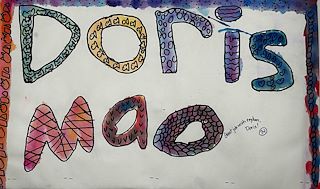 Doris
Mao
Doris!